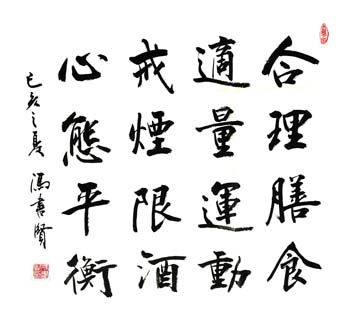 合理膳食
適量運動
戒煙限酒
心態平衡
己亥之夏 馮書賢